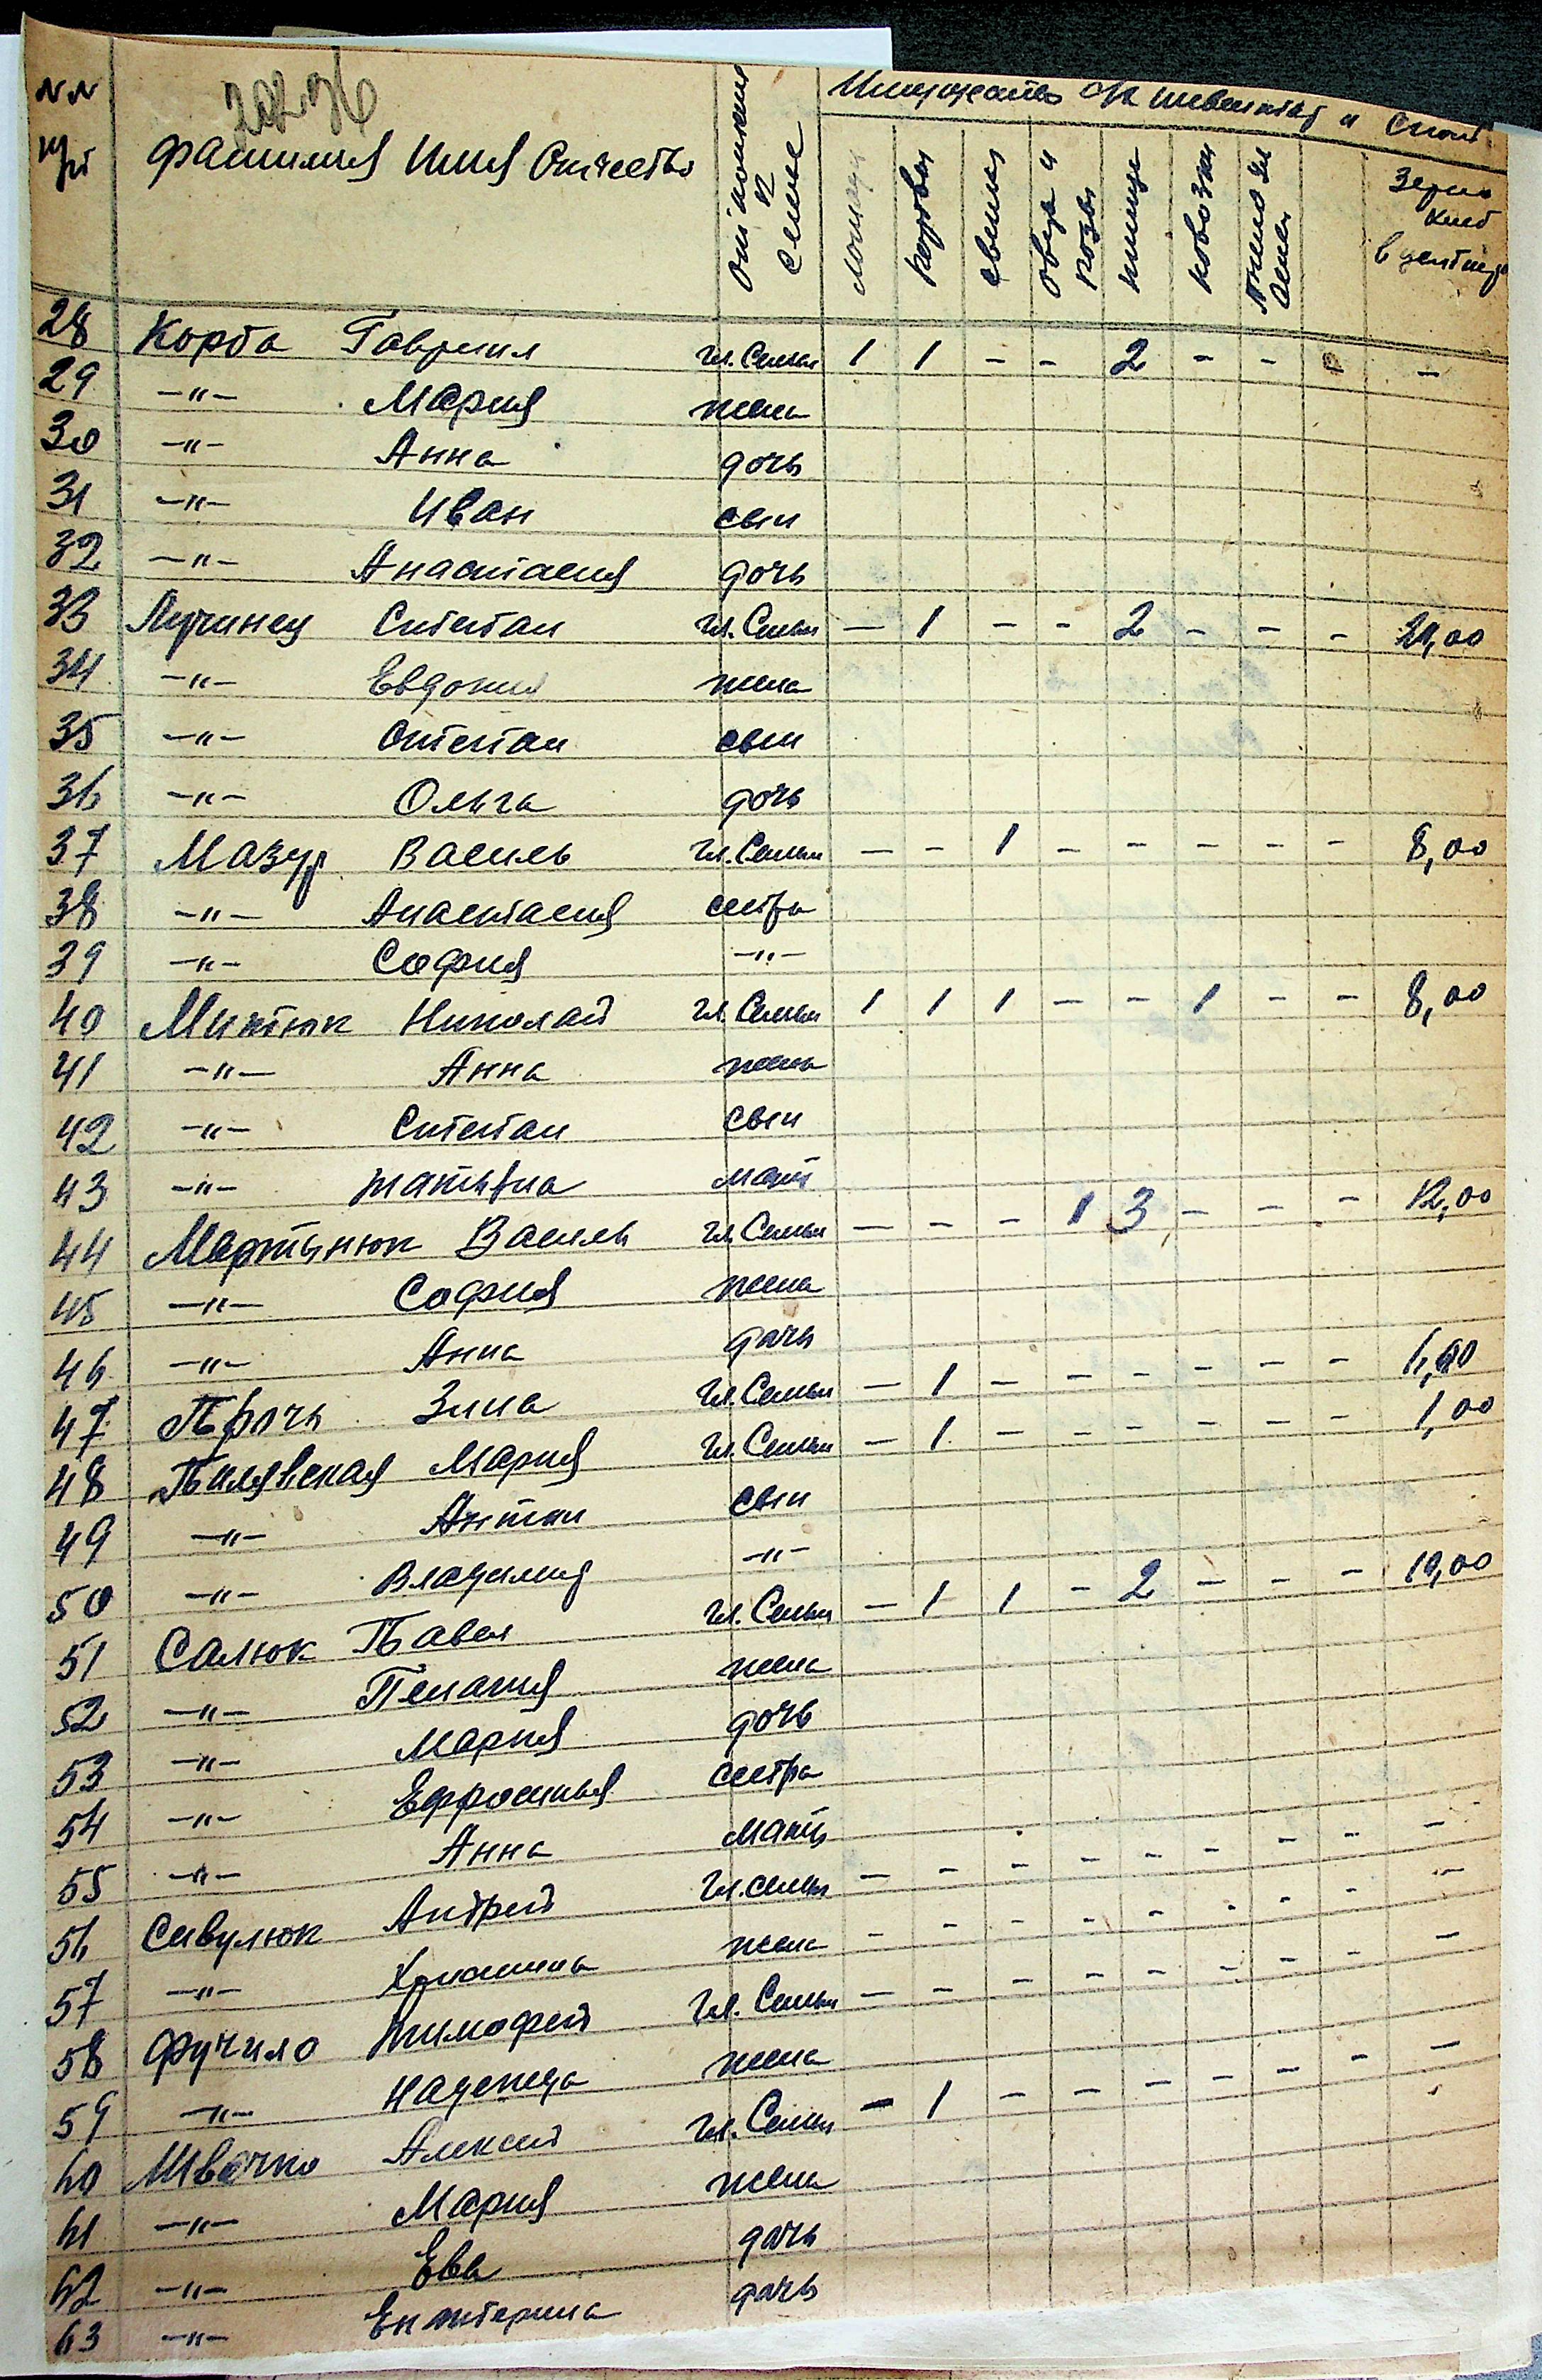 №№ п/п Фамилия Имя Отчество отношение к семье Имущество живой инвентарь и скот
20236
лошади коровы свиньи овцы и козы птица повозки зерно хлеб в центнер
28 Корба Гавриил гл. Семьи 1 1 - - 2 - - -
29 -"- Мария жена
30 -"- Анна дочь
31 -"- Иван сын
32 -"- Анастасия дочь
33 Лучинец Степан гл. Семьи - 1 - - 2 - - - 21,00
34 -"- Евдокия жена
35 -"- Степан сын
36 -"- Ольга дочь
37 Мазур Василь гл. Семьи - - 1 - - - - - 8,00
38 -"- Анастасия сестра
39 -"- София -"-
40 Митюк Николай гл. Семьи 1 1 1 - - 1 - - 8,00
41 -"- Анна жена
42 -"- Степан сын
43 -"- Татьяна мать
44 Мартынюк Василь гл. Семьи - - - 1 3 - - - 12,00
45 -"- София жена
46 -"- Анна дочь
47 Проч Зина гл. Семьи - 1 - - - - - -
48 Пилявская Мария гл. Семьи - 1 - - - - - - 1,00
49 -"- Антон сын
50 -"- Владимир -"-
51 Салюк Павел гл. Семьи - 1 1 - 2 - - - 10,00
52 -"- Пелагия жена
53 -"- Мария дочь
54 -"- Ефросинья сестра
55 -"- Анна мать
56 Сивулюк Андрей гл. семьи - - - - - - - - -
57 -"- Христина жена - - - - - - - - -
58 Фучило Тимофей гл. Семьи - - - - - - - - -
59 -"- Надежда жена
60 Швачко Алексей гл. Семьи - 1 - - - - - - -
61 -"- Мария жена
62 -"- Ева дочь
63 -"- Екатерина дочь